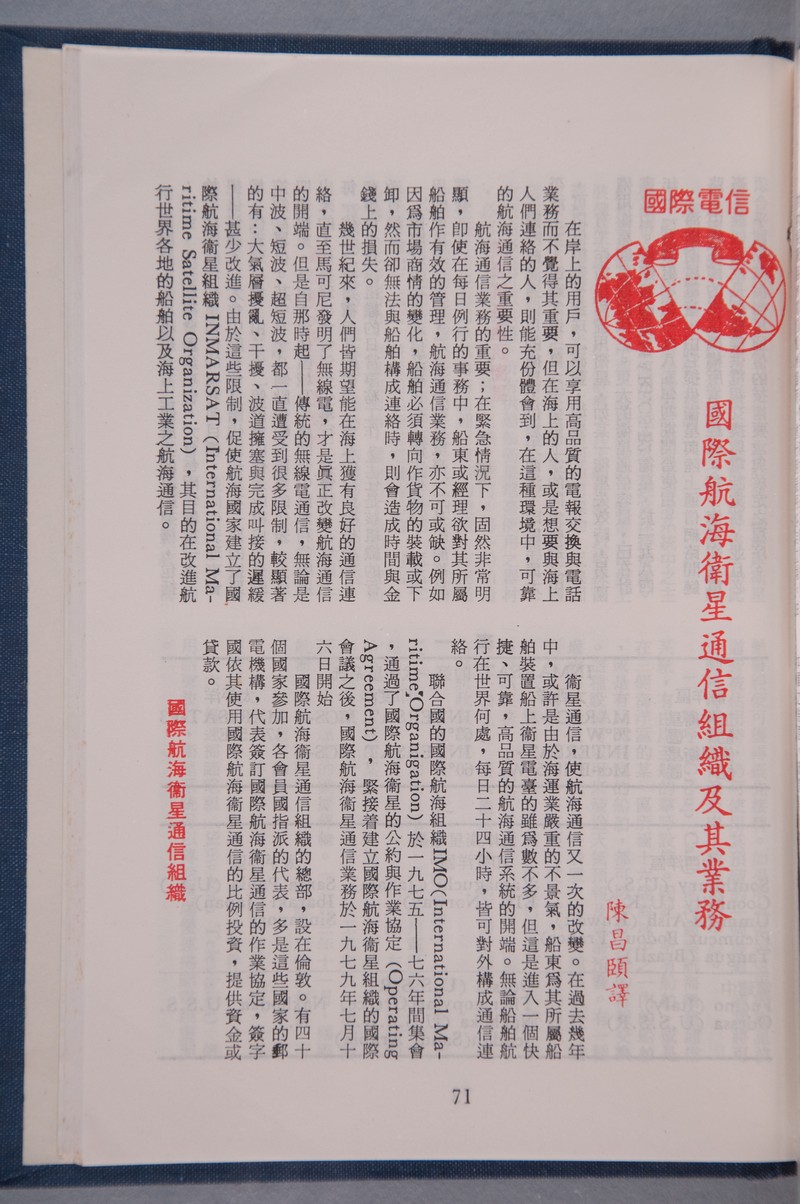 國際電信
國際航海衛星通信組織及其業務
陳昌頤譯
在岸上的用戶，可以享用高品質的電報交換與電話
業務而不覺得其重要，但在海上的人，或是想要與海上
人們連絡的人，則能充份體會到，在這種環境中，可靠
的航海通信之重要性。
航海通信業務的重要；在緊急情況下，固然非常明
顯，卽使在每日例行的事務中，船東或經理欲對其所屬
船舶作有效的管理，航海通信業務，亦不可或缺。例如
因爲市場商情的變化，船舶必須轉向作貨物的裝載或下
卸，然而卻無法與船舶構成連絡時，則會造成時間與金
錢上的損失。
幾世紀來，人們皆期望能在海上獲有良好的通信連
絡，直至馬可尼發明了無線電，才是眞正改變航海通信
的開端。但是自那時起——傳統的無線電通信，無論是
中波、短波、超短波，都一直遭受到很多限制，較顯著
的有：大氣層擾亂、干擾、波道擁塞與完成叫接的遲緩
——甚少改進。由於這些限制，促使航海國家建立了國
際航海衞星組織 INMARSAT (International Ma-
ritime Satellite Organization)，其目的在改進航
行世界各地的船舶以及海上工業之航海通信。
衞星通信，使航海通信又一次的改變。在過去幾年
中，或許是由於海運業嚴重的不景氣，船東爲其所屬船
舶裝置船上衞星電臺的雖爲數不多，但這是進入一個快
捷、可靠，高品質的航海通信系統的開端。無論船舶航
行在世界何處，每日二十四小時，皆可對外構成通信連
絡。
聯合國的國際航海組織 IMO (International Ma-
ritime Organigation) 於一九七五——七六年間集會
，通過了國際航海衞星的公約與作業協定 (Operating
Agreement)，緊接着建立國際航海衞星組織的國際
會議之後，國際航海衞星通信業務於一九七九年七月十
六日開始
國際航海衞星通信組織的總部，設在倫敦。有四十
個國家參加，各會員國指派的代表，多是這些國家的郵
電機構，代表簽訂國際航海衞星通信的作業協定，簽字
國依其使用國際航海衞星通信的比例投資，提供資金或
貸款。
國際航海衞星通信組織
71